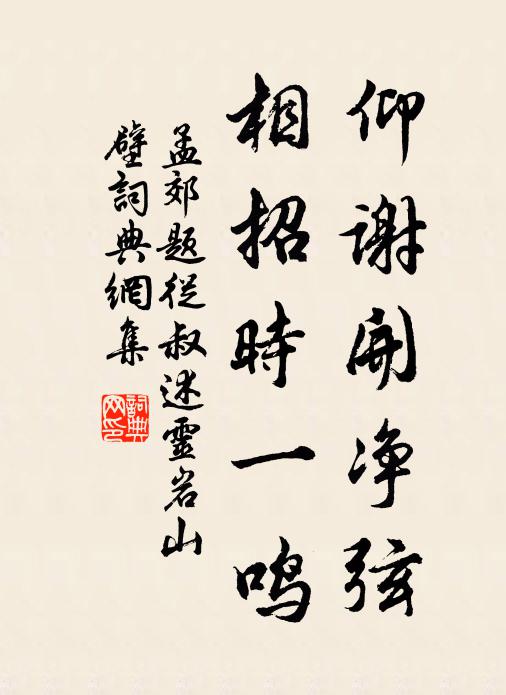 仰谢开净弦
相招時一鸣
孟郊題從叔述靈岩山
壁詞典網集
詞典网印